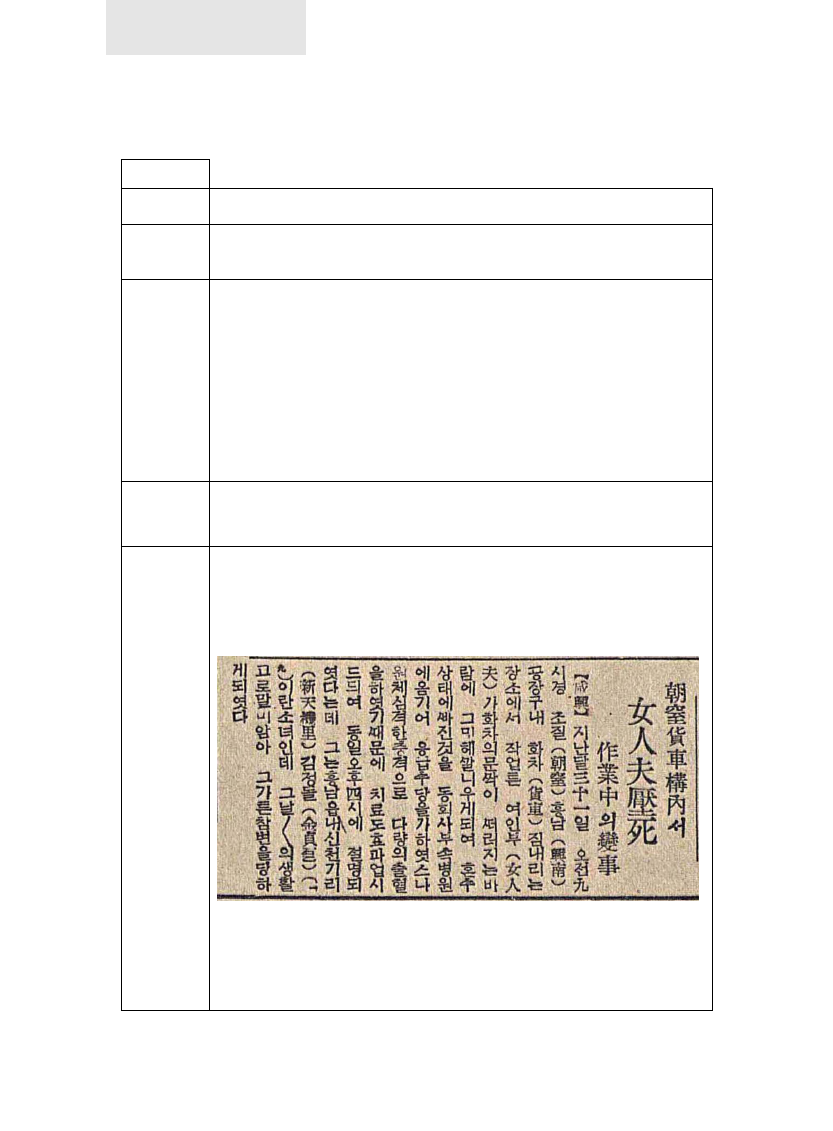 朝窒貨車構內서
女人夫壓死
作業中의變事
【咸興】지난달三十一일 오전九
시경 조질(朝窒)흥남(興南)
공장구내 화차(貨車)짐내리는
장소에서 작업튼 여인부(女人
夫)가화차의문싹이 써러지는바
람에 그미헤쌀니우게되여 혼수
상태에싸진것을 동회사부속병원
에옴기어 응급수당을가하엿스나
원체심격한충격으로 다량의출혈
을하엿기때문에 치료도효과업시
드듸여 동일오후四시에 절명되
엿다는데 그는흥남읍내신천기리
(新天機里)김정돌(金貞乭)(一
九)이란소녀인데 그날〱의생활
고로말미암아 그가튼참변을당하
게되엿다